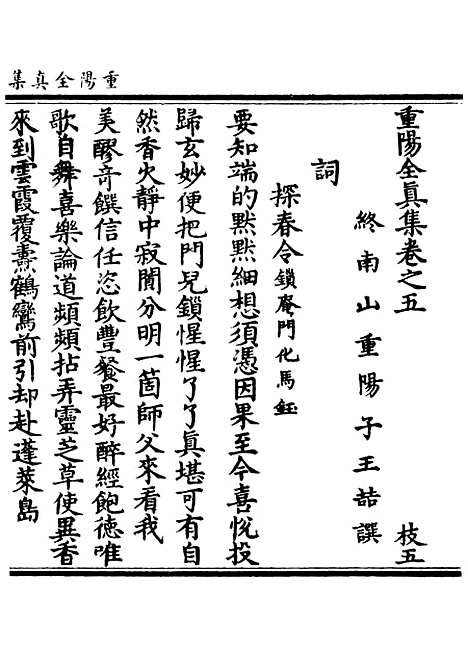 重陽全真集
重陽全真集卷之五　枝五
終南山重陽子王嚞譔
詞
探春令鎖庵門化馬鈺
要知端的默默細想須憑因果至今喜悅投
歸玄妙便把門兒鎖惺惺了了真堪可有自
然香火靜中寂闃分明一箇師父來看我
美醪奇饌信任恣飲豐飱最好醉經飽德唯
歌自舞喜樂論道頻頻拈弄靈芝草使異香
來到雲霞覆燾鶴鸞前引却赴蓬萊島